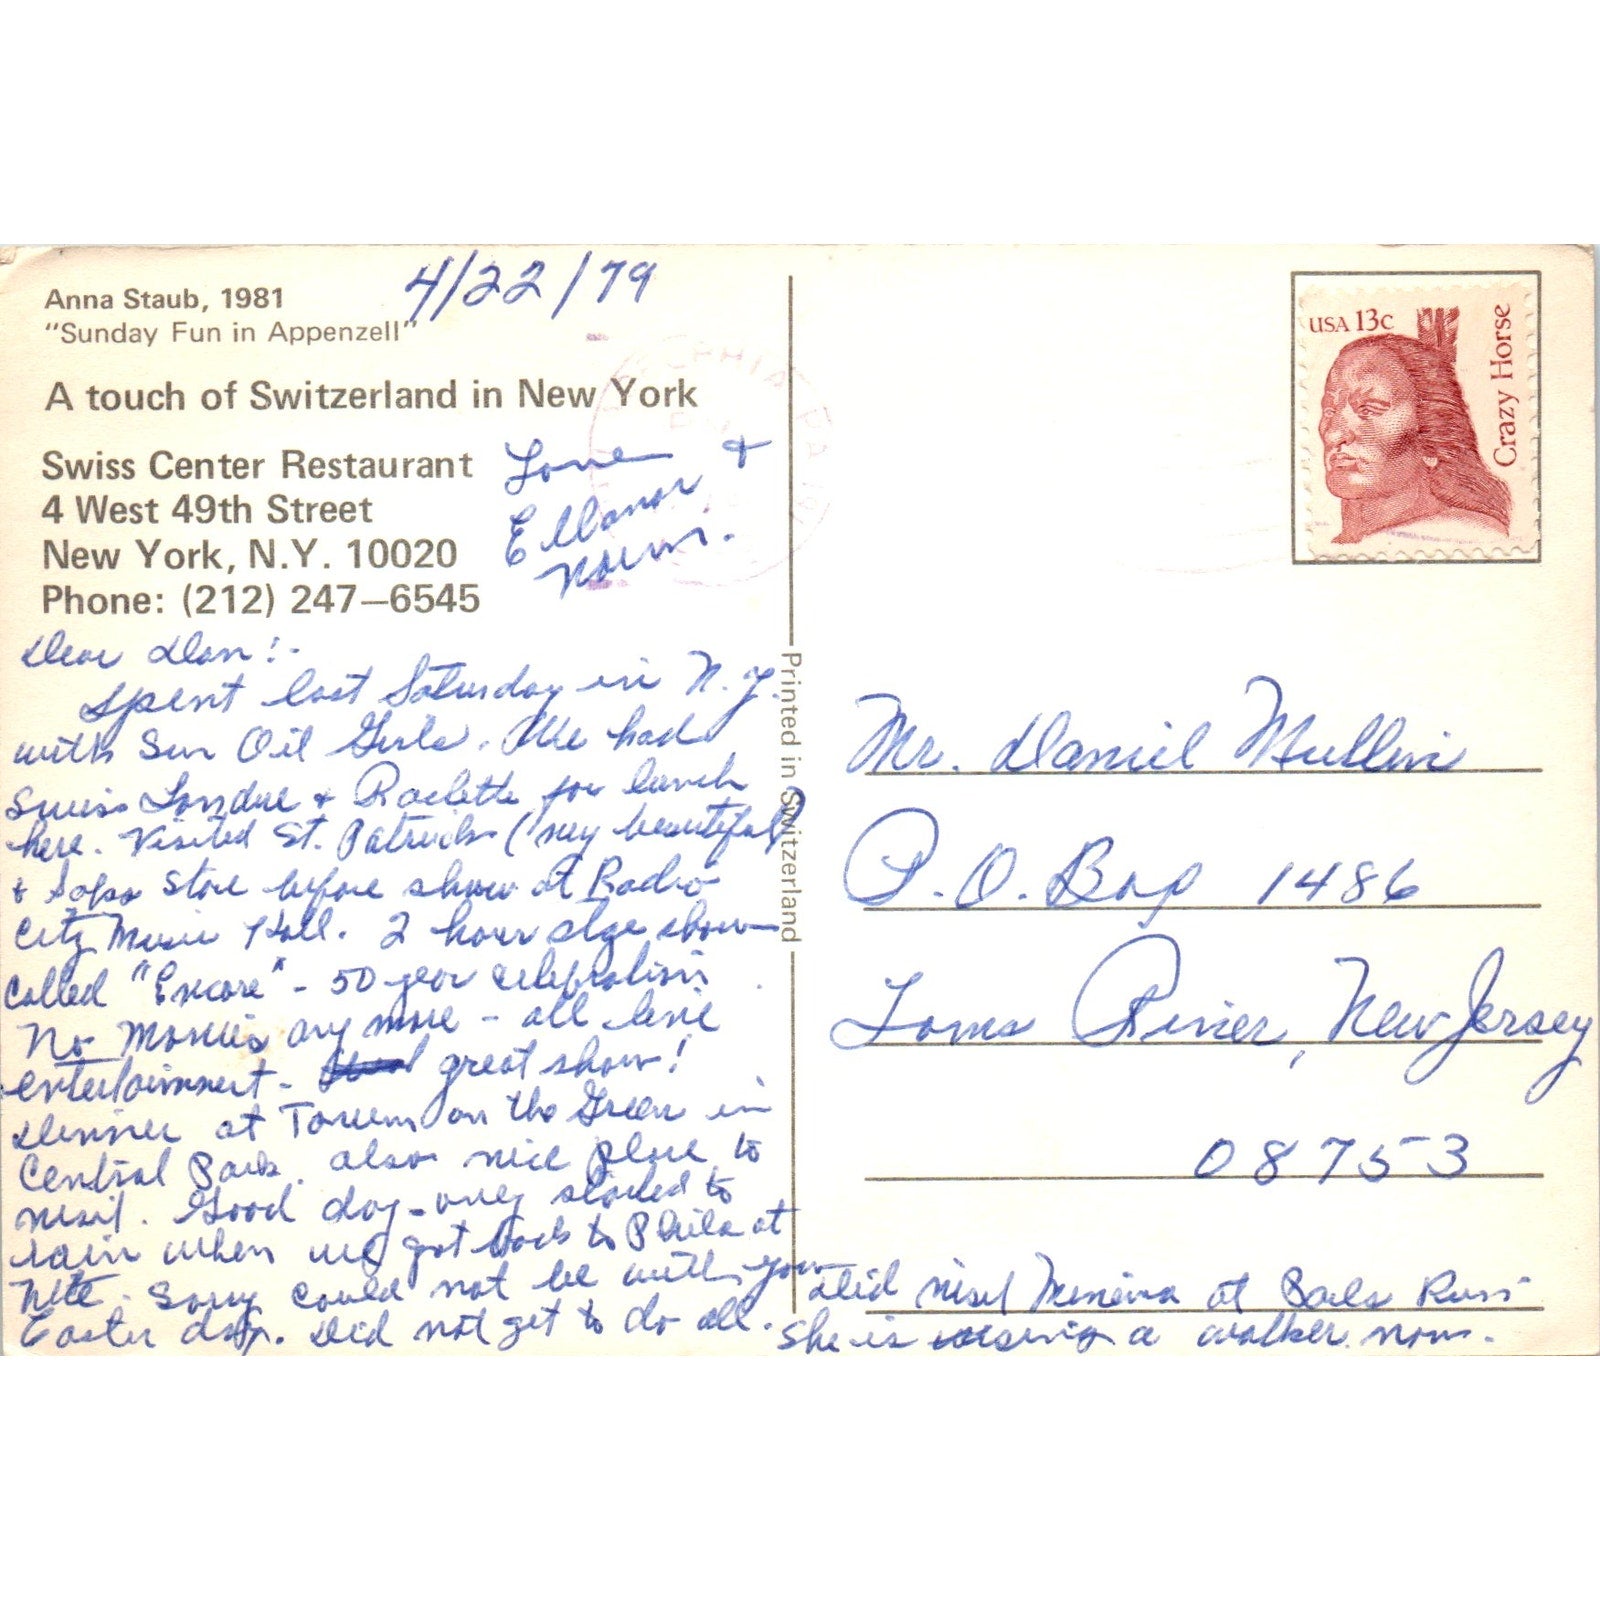 Anna Staub, 1981
"Sunday Fun in Appenzell"
4/22/79
A touch of Switzerland in New York
Swiss Center Restaurant
4 West 49th Street
New York, N.Y. 10020
Phone: (212) 247–6545
Love &
Ellanor
Norm.
Dear Dan:-
Spent last Saturday in N.Y.
with Sun Oil Girls. We had
Swiss Fondue + Raclette for lunch
here. Visited St. Patricks (very beautiful)
+ Saks Store before show at Radio
City Music Hall. 2 hour stge show
called "Encore" - 50 year celebration
No Movies any more - all live
entertainment - great show!
Dinner at Tavern on the Green in
Central Park. also nice place to
visit. Good day - only started to
rain when we got back to Phila at
Nite. Sorry could not be with you
Easter day. Did not get to do all.
Did visit Minerva at
She is using a walker now.
Printed in Switzerland
USA 13c
Crazy Horse
Mr. Daniel Mullin
P.O. Box 1486
Toms River, New Jersey
08753